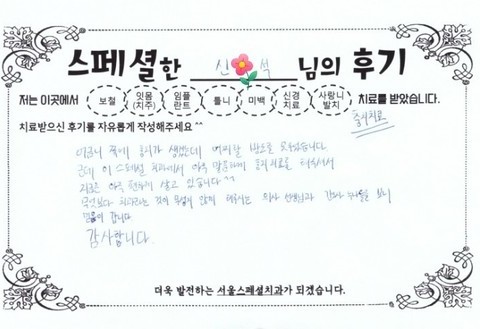 스페셜한 신 석 님의 후기
저는 이곳에서 보철 잇몸(치주) 임플란트 틀니 미백 신경치료 사랑니발치 치료를 받았습니다.
충치치료
치료받으신 후기를 자유롭게 작성해주세요^^
어금니 쪽에 충치가 생겼는데 며칠간 밥도 못 먹었습니다
근데 이 스페셜 치과에서 아주 말끔하게 충치치료를 해주셔서
지금은 아주 편하게 살고 있습니다^^
무엇보다 치과라는 것이 무섭지 않게 해주시는 의사 선생님과 간호사 분들을 보니
믿음이 갑니다
감사합니다.
더욱 발전하는 서울스페셜치과가 되겠습니다.